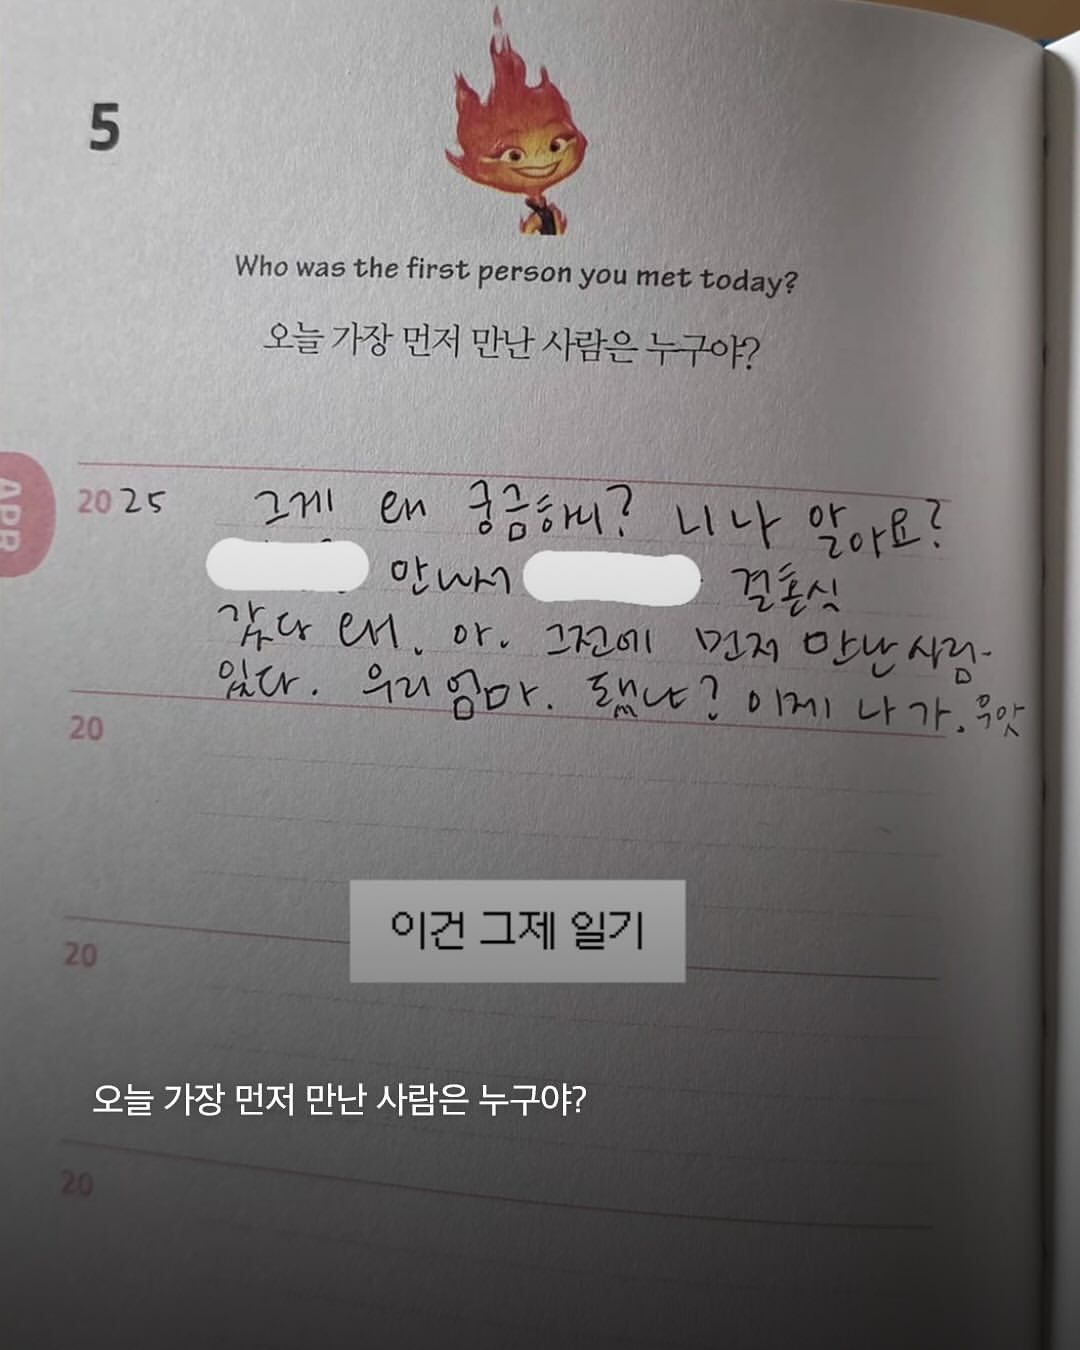 5
Who was the first person you met today?
오늘 가장 먼저 만난 사람은 누구야?
APR
2025 그게 왜 궁금하니? 니 나 알아요?
만나서 결혼식
갔다 왔. 아. 그전에 먼저 만난 사람
있다. 우리 엄마. 됐냐? 이제 나가.
20
20
이건 그제 일기
오늘 가장 먼저 만난 사람은 누구야?
20